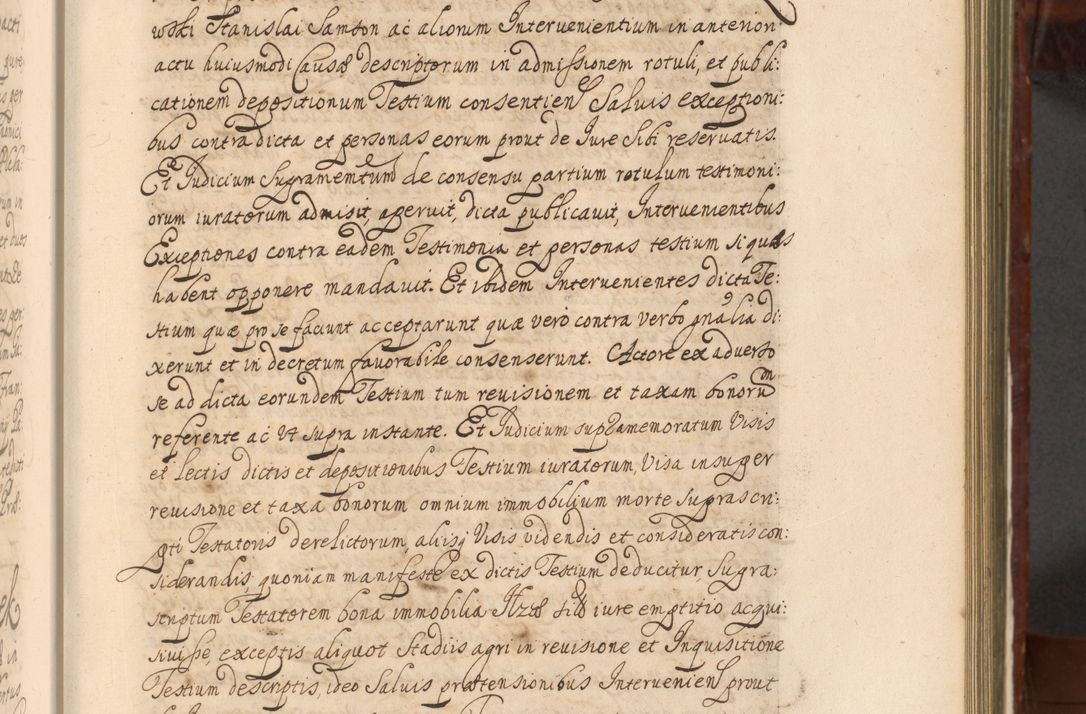 wski Stanislai Samson ac aliorum Intervenientium in anteriori
actu huiusmodi Causæ descriptorum in admissionem rotuli, et publi:
cationem depositionum Testium consentien Salvis exceptioni:
bus contra dicta et personas eorum prout de Iure Sibi reservatis.
Et Iudicium Supramemtum de consensu partium rotulum testimoni:
orum iuratorum admisit, aperuit, dicta publicavit, Intervenientibus
Exceptiones contra eadem Testimonia et personas testium si quas
habent opponere mandavit. Et ibidem Intervenientes dicta Te:
stium quæ pro se faciunt acceptarunt quæ vero contra verbo gnalia di:
xerunt et in decretum favorabile consenserunt. Actore ex adverso
se ad dicta eorundem Testium tum revisionem et taxam bonorum
referente ac Vt supra instante. Et Iudicium supramemoratum Visis
et lectis dictis et depositionibus Testium iuratorum, Visa insuper
revisione et taxa bonorum omnium immobilium morte suprascri:
pti Testatoris derelictorum, aliisq Visis videndis et consideratis con:
siderandis, quoniam manifeste ex dictis Testium deducitur Supra:
scriptum Testatorem bona immobilia sibi iure emptitio acqui:
sivisse, exceptis aliquot Stadiis agri in revisione et Inquisitione
Testium descriptis, ideo Salvis prætensionibus Intervenien prout